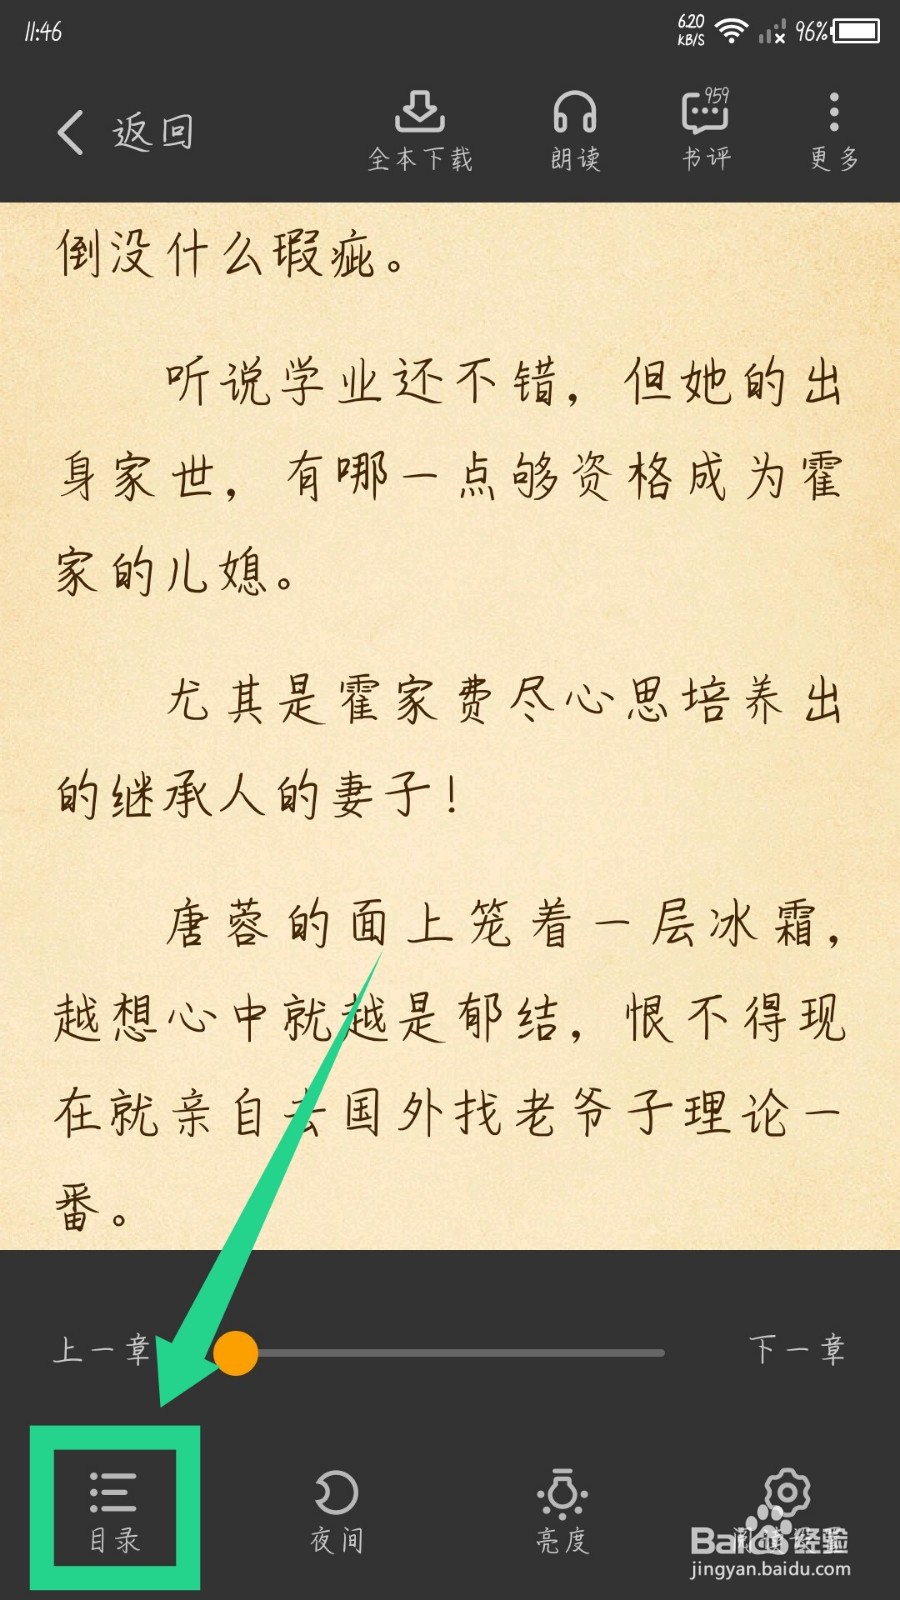 11:46
6.20 KB/S
96%
返回
全本下载
朗读
959
书评
更多
倒没什么瑕疵。
听说学业还不错，但她的出
身家世，有哪一点够资格成为霍
家的儿媳。
尤其是霍家费尽心思培养出
的继承人的妻子！
唐蓉的面上笼着一层冰霜，
越想心中就越是郁结，恨不得现
在就亲自去国外找老爷子理论一
番。
上一章
下一章
目录
夜间
亮度
Baidu经验
jingyan.baidu.com